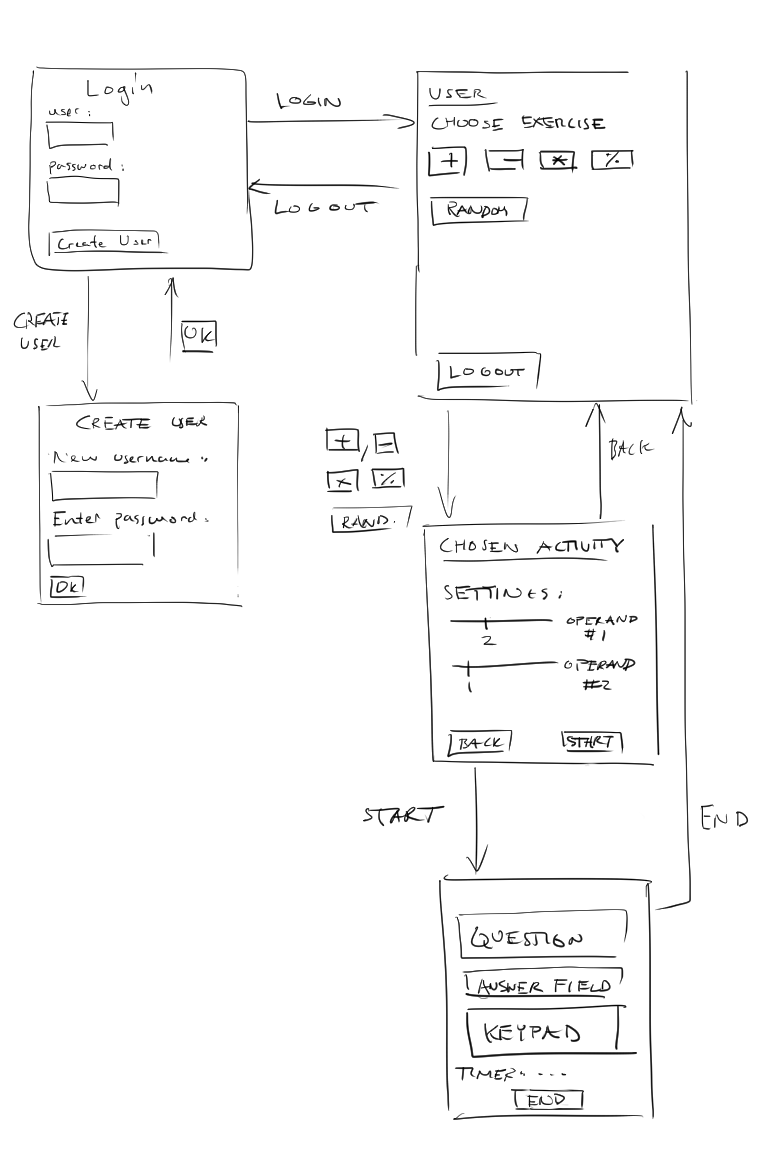 Login
user:
password:
Create User
LOGIN
LOGOUT
USER
CHOOSE EXERCISE
+ - * %
RANDOM
LOGOUT
CREATE
USER
OK
CREATE USER
New username:
Enter password:
OK
+, -
* %
RAND.
BACK
CHOSEN ACTIVITY
SETTINGS:
OPERAND
#1
2
OPERAND
#2
1
BACK START
START
END
QUESTION
ANSWER FIELD
KEYPAD
TIMER: ...
END